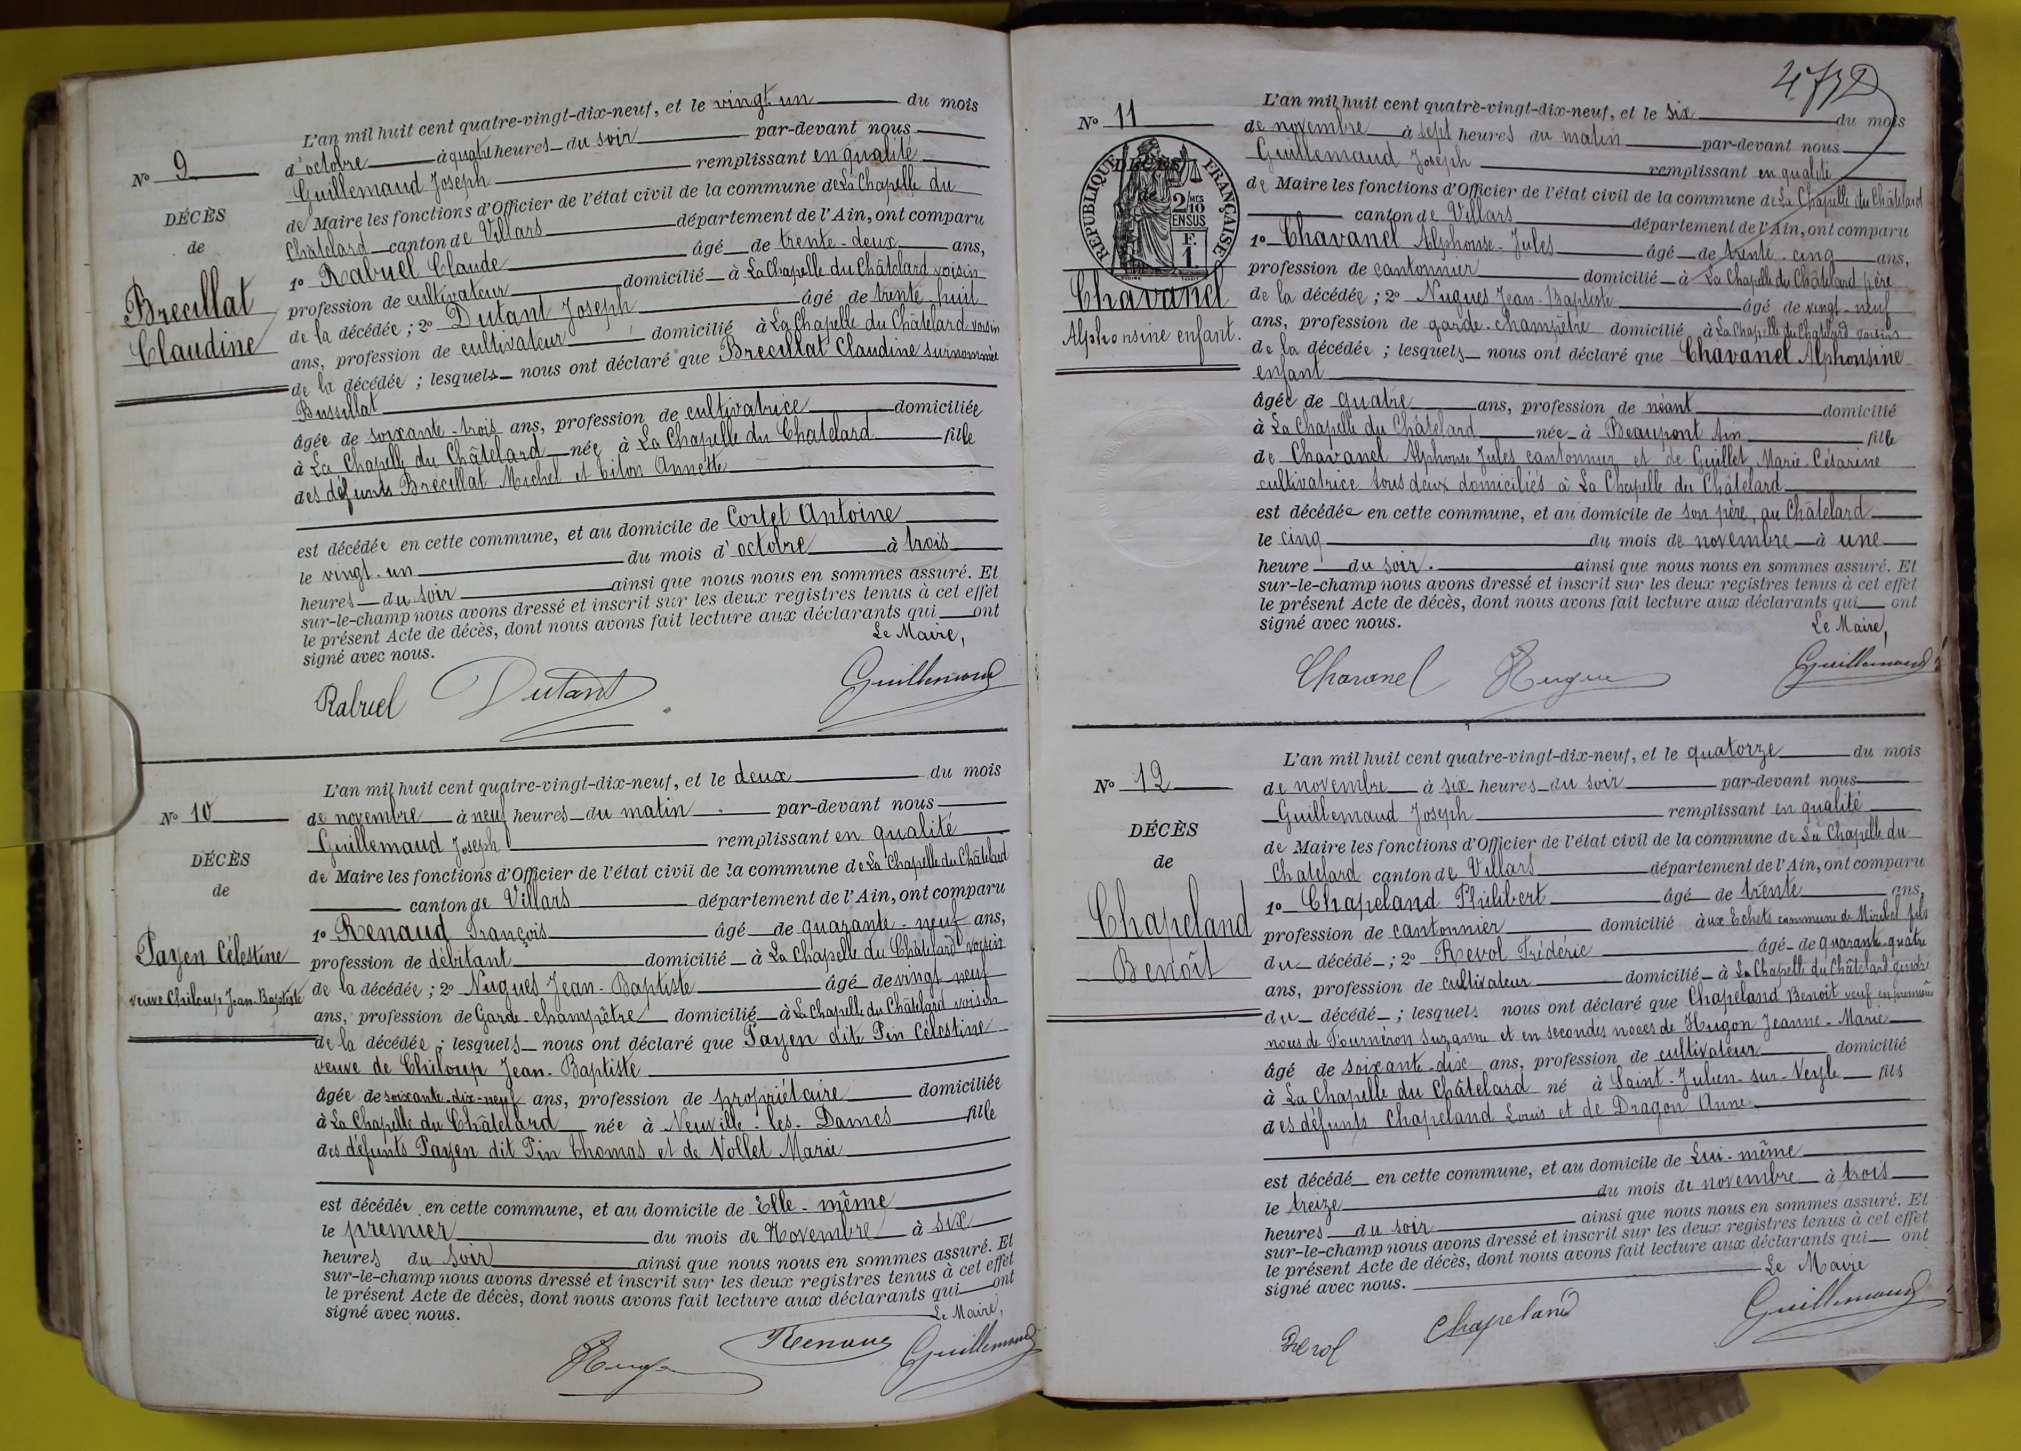 L'an mil huit cent quatre-vingt-dix-neuf, et le vingt un du mois
d'octobre à quatre heures du soir par-devant nous
Guillemaud Joseph remplissant en qualité
de Maire les fonctions d'Officier de l'état civil de la commune de La Chapelle du
Châtelard canton de Villars département de l'Ain, ont comparu
1º Rabuel Claude âgé de trente-deux ans,
profession de cultivateur domicilié à La Chapelle du Châtelard voisin
de la décédée ; 2º Dutant Joseph âgé de trente huit
ans, profession de cultivateur domicilié à La Chapelle du Châtelard voisin
de la décédée ; lesquels nous ont déclaré que Brecillat Claudine surnommée
Bussillat
âgée de soixante-trois ans, profession de cultivatrice domiciliée
à La Chapelle du Châtelard née à La Chapelle du Chatelard fille
des défunts Brecillat Michel et Annette
est décédée en cette commune, et au domicile de Cortet Antoine
le vingt-un du mois d'octobre à trois
heures du soir ainsi que nous nous en sommes assuré. Et
sur-le-champ nous avons dressé et inscrit sur les deux registres tenus à cet effet
le présent Acte de décès, dont nous avons fait lecture aux déclarants qui ont
signé avec nous.
Le Maire,
Rabuel Dutant Guillemaud
Nº 9
DÉCÈS
de
Brecillat
Claudine
L'an mil huit cent quatre-vingt-dix-neuf, et le deux du mois
de novembre à neuf heures du matin par-devant nous
Guillemaud Joseph remplissant en qualité
de Maire les fonctions d'Officier de l'état civil de la commune de La Chapelle du Châtelard
canton de Villars département de l'Ain, ont comparu
1º Renaud François âgé de quarante-neuf ans,
profession de débitant domicilié à La Chapelle du Châtelard voisin
de la décédée ; 2º Nugues Jean-Baptiste âgé de vingt-neuf
ans, profession de Garde-champêtre domicilié à La Chapelle du Châtelard voisin
de la décédée ; lesquels nous ont déclaré que Payen dite Pin Célestine
veuve de Chiloup Jean-Baptiste
âgée de soixante-dix-neuf ans, profession de propriétaire domiciliée
à La Chapelle du Châtelard née à Neuville-les-Dames fille
des défunts Payen dit Pin Thomas et de Vollet Marie
est décédée en cette commune, et au domicile de Elle-même
le premier du mois de Novembre à six
heures du soir ainsi que nous nous en sommes assuré. Et
sur-le-champ nous avons dressé et inscrit sur les deux registres tenus à cet effet
le présent Acte de décès, dont nous avons fait lecture aux déclarants qui ont
signé avec nous.
Le Maire,
Renaud Guillemaud
Nº 10
DÉCÈS
de
Payen Célestine
veuve Chiloup Jean-Baptiste
4732
L'an mil huit cent quatre-vingt-dix-neuf, et le six du mois
de novembre à sept heures du matin par-devant nous
Guillemaud Joseph remplissant en qualité
de Maire les fonctions d'Officier de l'état civil de la commune de La Chapelle du Châtelard
canton de Villars département de l'Ain, ont comparu
1º Chavanel Alphonse-Jules âgé de trente-cinq ans,
profession de cantonnier domicilié à La Chapelle du Châtelard père
de la décédée ; 2º Nugues Jean-Baptiste âgé de vingt-neuf
ans, profession de garde-champêtre domicilié à La Chapelle du Chatelard voisin
de la décédée ; lesquels nous ont déclaré que Chavanel Alphonsine
enfant
âgée de quatre ans, profession de néant domicilié
à La Chapelle du Châtelard née à Beaupont Ain fille
de Chavanel Alphonse Jules cantonnier et de Guillet Marie-Césarine
cultivatrice tous deux domiciliés à La Chapelle du Châtelard
est décédée en cette commune, et au domicile de son père, au Châtelard
le cinq du mois de novembre à une
heure du soir. ainsi que nous nous en sommes assuré. Et
sur-le-champ nous avons dressé et inscrit sur les deux registres tenus à cet effet
le présent Acte de décès, dont nous avons fait lecture aux déclarants qui ont
signé avec nous.
Le Maire,
Chavanel Guillemaud
Nº 11
DÉCÈS
REPUBLIQUE FRANÇAISE
2/10
EN SUS
F.
1
Chavanel
Alphonsine enfant.
L'an mil huit cent quatre-vingt-dix-neuf, et le quatorze du mois
de novembre à six heures du soir par-devant nous
Guillemaud Joseph remplissant en qualité
de Maire les fonctions d'Officier de l'état civil de la commune de La Chapelle du
Chatelard canton de Villars département de l'Ain, ont comparu
1º Chapeland Philibert âgé de trente ans,
profession de cantonnier domicilié aux Echets commune de Miribel fils
du décédé ; 2º Revol Frédéric âgé de quarante-quatre
ans, profession de cultivateur domicilié à La Chapelle du Châtelard gendre
du décédé ; lesquels nous ont déclaré que Chapeland Benoit veuf en premières
noces de Fournéron Suzanne et en secondes noces de Hugon Jeanne-Marie
âgé de soixante-dix ans, profession de cultivateur domicilié
à La Chapelle du Châtelard né à Saint-Julien-sur-Veyle fils
des défunts Chapeland Louis et de Dragon Anne
est décédé en cette commune, et au domicile de Lui-même
le treize du mois de novembre à trois
heures du soir ainsi que nous nous en sommes assuré. Et
sur-le-champ nous avons dressé et inscrit sur les deux registres tenus à cet effet
le présent Acte de décès, dont nous avons fait lecture aux déclarants qui ont
signé avec nous.
Le Maire
Revol Chapeland Guillemaud
Nº 12
DÉCÈS
de
Chapeland
Benoît